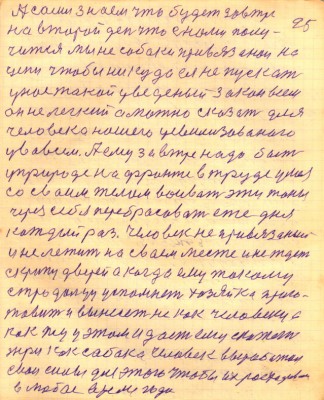 А сами знаем что будет завтра 25
на второй ден что с нами полу-
чится мы не собаки привязаной на
цепи чтобы никуда ея не пускат
у нас такой уведеный закон всем
он не легкий а можно сказат для
человека нашего цевилизованого
уваем. А ему завтра надо быт
у природе на фронте в труде у них
со своим телом воеват эти тоны
через себя перебрасоват еже дня
каждый раз. Человек не привязаный
и не летит на своем месте и не ждет
скрипу дверей а когда ему такому
хозяйка приго-
товит и вынесет не как человеку а
как псу у этом и даст ему скажет
жри как сабака человек выработал
свои силы для этого чтобы их
в любое время года.